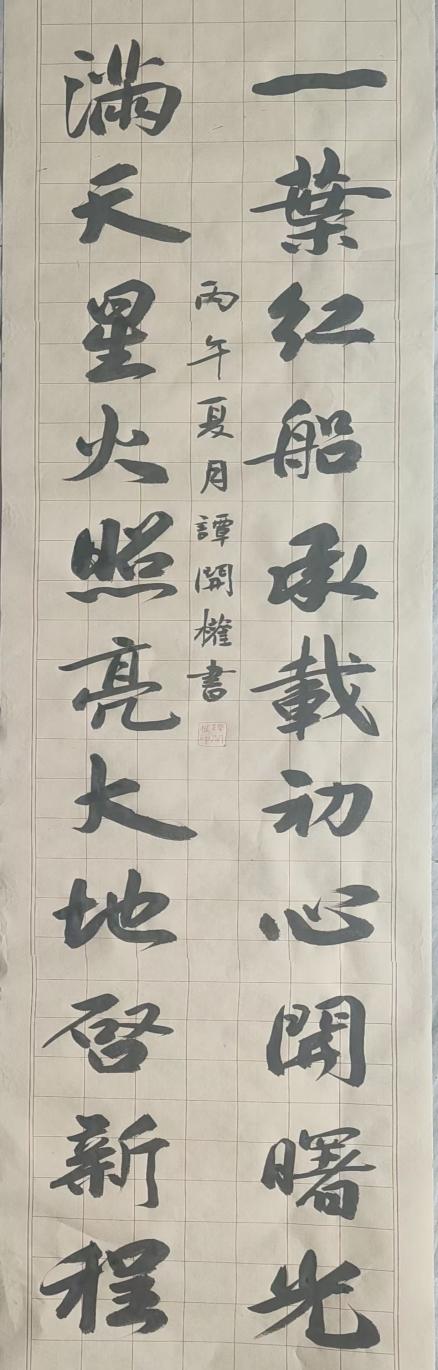 一葉红船承載初心開曙光
滿天星火照亮大地啓新程
丙午夏月譚開權書